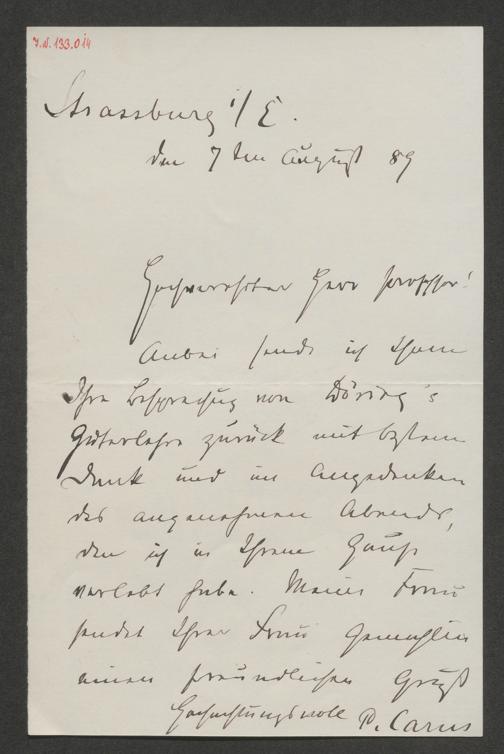 I.N. 133.014
Strassburg i/E.
den 7ten August 89
Hochverehrter Herr Professor!
Anbei sende ich Ihnen
Ihre Besprechung von Döring's
Güterlehre zurück mit bestem
Dank und im Angedenken
des angenehmen Abends,
den ich in Ihrem Hause
verlebt habe. Meine Frau
sendet Ihrer Frau Gemahlin
einen freundlichen Gruß
Hochachtungsvoll P. Carus